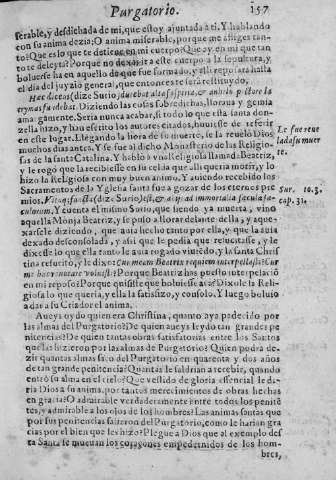 Purgatorio. 157
serable, y desdichada de mi, que estoy ajuntada a ti. Y hablando
con su anima dezia: O anima miserable, porque me afliges tan-
to? Que es lo que te detiene en mi cuerpo? Que ay en mi que tan-
to te deleyta? Porque no dexaràs este cuerpo a la sepultura, y
boluerse ha en aquello de que fue formado, y alli reposarà hasta
el dia del juyzio general, que entonces te serà restituydo,
Hæc dictas (dize Surio)
Diziendo las cosas sobredichas, lloraua y gemia
amargamente. Seria nunca acabar, si todo lo que esta santa don-
zella hizo, y han escrito los autores citados, huuiesse de referir
en este lugar. Llegando la hora de su muerte, se la reuelò Dios
muchos dias antes. Y se fue al dicho Monasterio de las Religio-
sas de la santa Catalina. Y hablò a vna Religiosa llamada Beatriz,
y le rogò que la recibiesse en su celda que alli queria morir, y lo
hizo la Religiosa con muy buen animo. Y auiendo recebido los
Sacramentos de la Yglesia santa fue a gozar de los eternos pre
mios.
culorum. Y cuenta el mismo Surio, que siendo ya muerta, vino
aquella Monja Beatriz, y se puso a llorar delante della, y a que-
xarsele diziendo, que auia hecho tanto por ella, y que la auia
dexado desconsolada, y assi que le pedia que resucitasse, y le
dixesse lo que ella tanto le auia rogado viuiendo, y la santa Chris
tina resucitò, y le dixo: Cur meam Beatrix requiem interpellasti? Cur
me huc remeare voluisti? Porque Beatriz has puesto interpelaciō
en mi reposo? Porque quisiste que boluiesse acà? Dixole la Reli-
giosa lo que queria, y ella la satisfizo, y consolò. Y luego boluiò
a dar a su Criador el anima.
Aueys oydo quien era Christina, quanto aya padecido por
las almas del Purgatorio? De quien aueys leydo tan grandes pe
nitencias? De quien tantas obras satisfatorias entre los Santos
que las hiziesen por las almas de Purgatorio? Quien podrà de-
zir quantas almas sacò del Purgatorio en quarenta y dos años
de tan grande penitencia? Quantas le saldrian a recebir, quando
entrò su alma en el cielo? Que vestido de gloria essencial le da-
ria Dios a su anima, por tantos merecimientos de obras hechas
en gracia? O admirable verdaderamente entre todos los penitē
tes, y admirable a los ojos de los hombres! Las animas santas que
por sus penitencias salieron del Purgatorio, como le harian gra
cias por el bien que les hizo? Plegue a Dios que al exemplo desta
ta Santa se mueuan los coraçones empedernidos de los hom-
bres,
Le fue reue
lada su muer
te.
Sur. to. 3.
cap. 31.